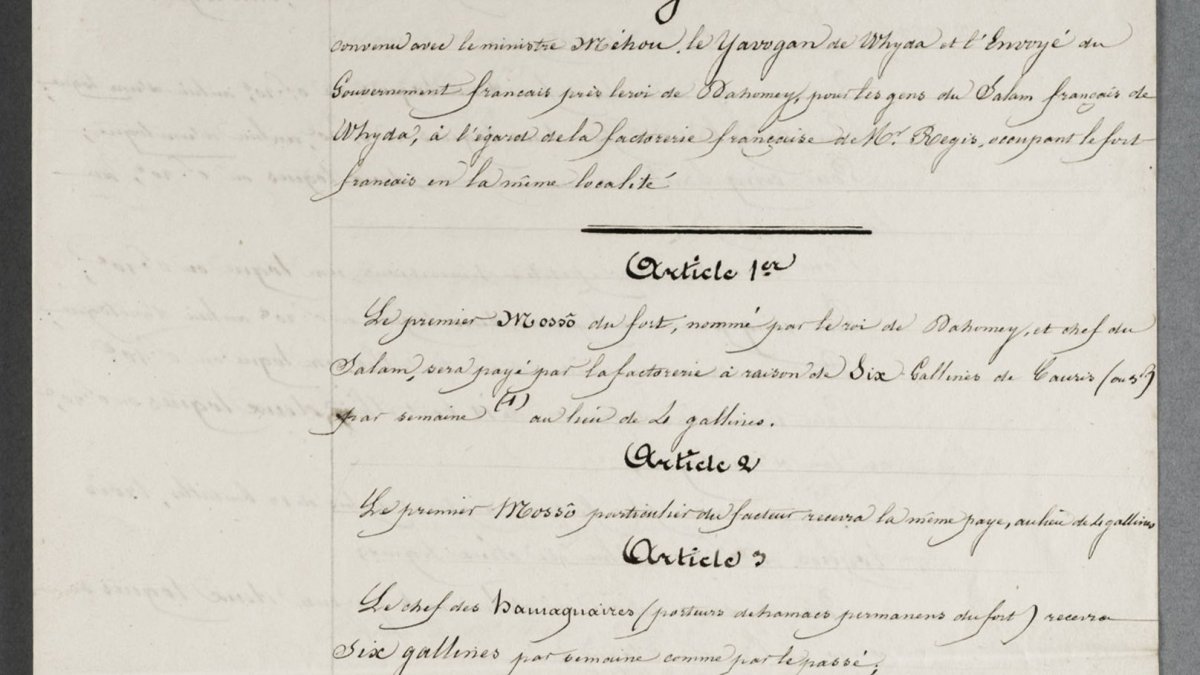 convenu avec le ministre Méhou, le Yavogan de Whyda et l'Envoyé du
Gouvernement français près le roi de Dahomey, pour les gens du Salam français de
Whyda, à l'égard de la factorerie française de Mr Regis, occupant le fort
français en la même localité
Article 1er
Le premier Mossô du fort, nommé par le roi de Dahomey, et chef du
Salam, sera payé par la factorerie à raison de Six Gallines de Cauris (ou 3f)
par semaine (1) au lieu de 4 gallines.
Article 2
Le premier Mossô particulier du facteur recevra la même paye, au lieu de 4 gallines
Article 3
Le chef des hamaquaires (porteurs de hamacs permanens du fort) recevra
Six gallines par semaine comme par le passé;